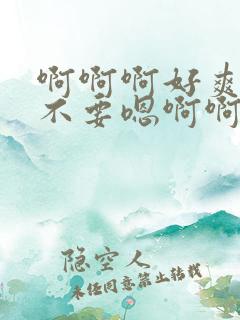 啊啊啊好爽
不要嗯啊啊
隐空人
未经同意禁止转载